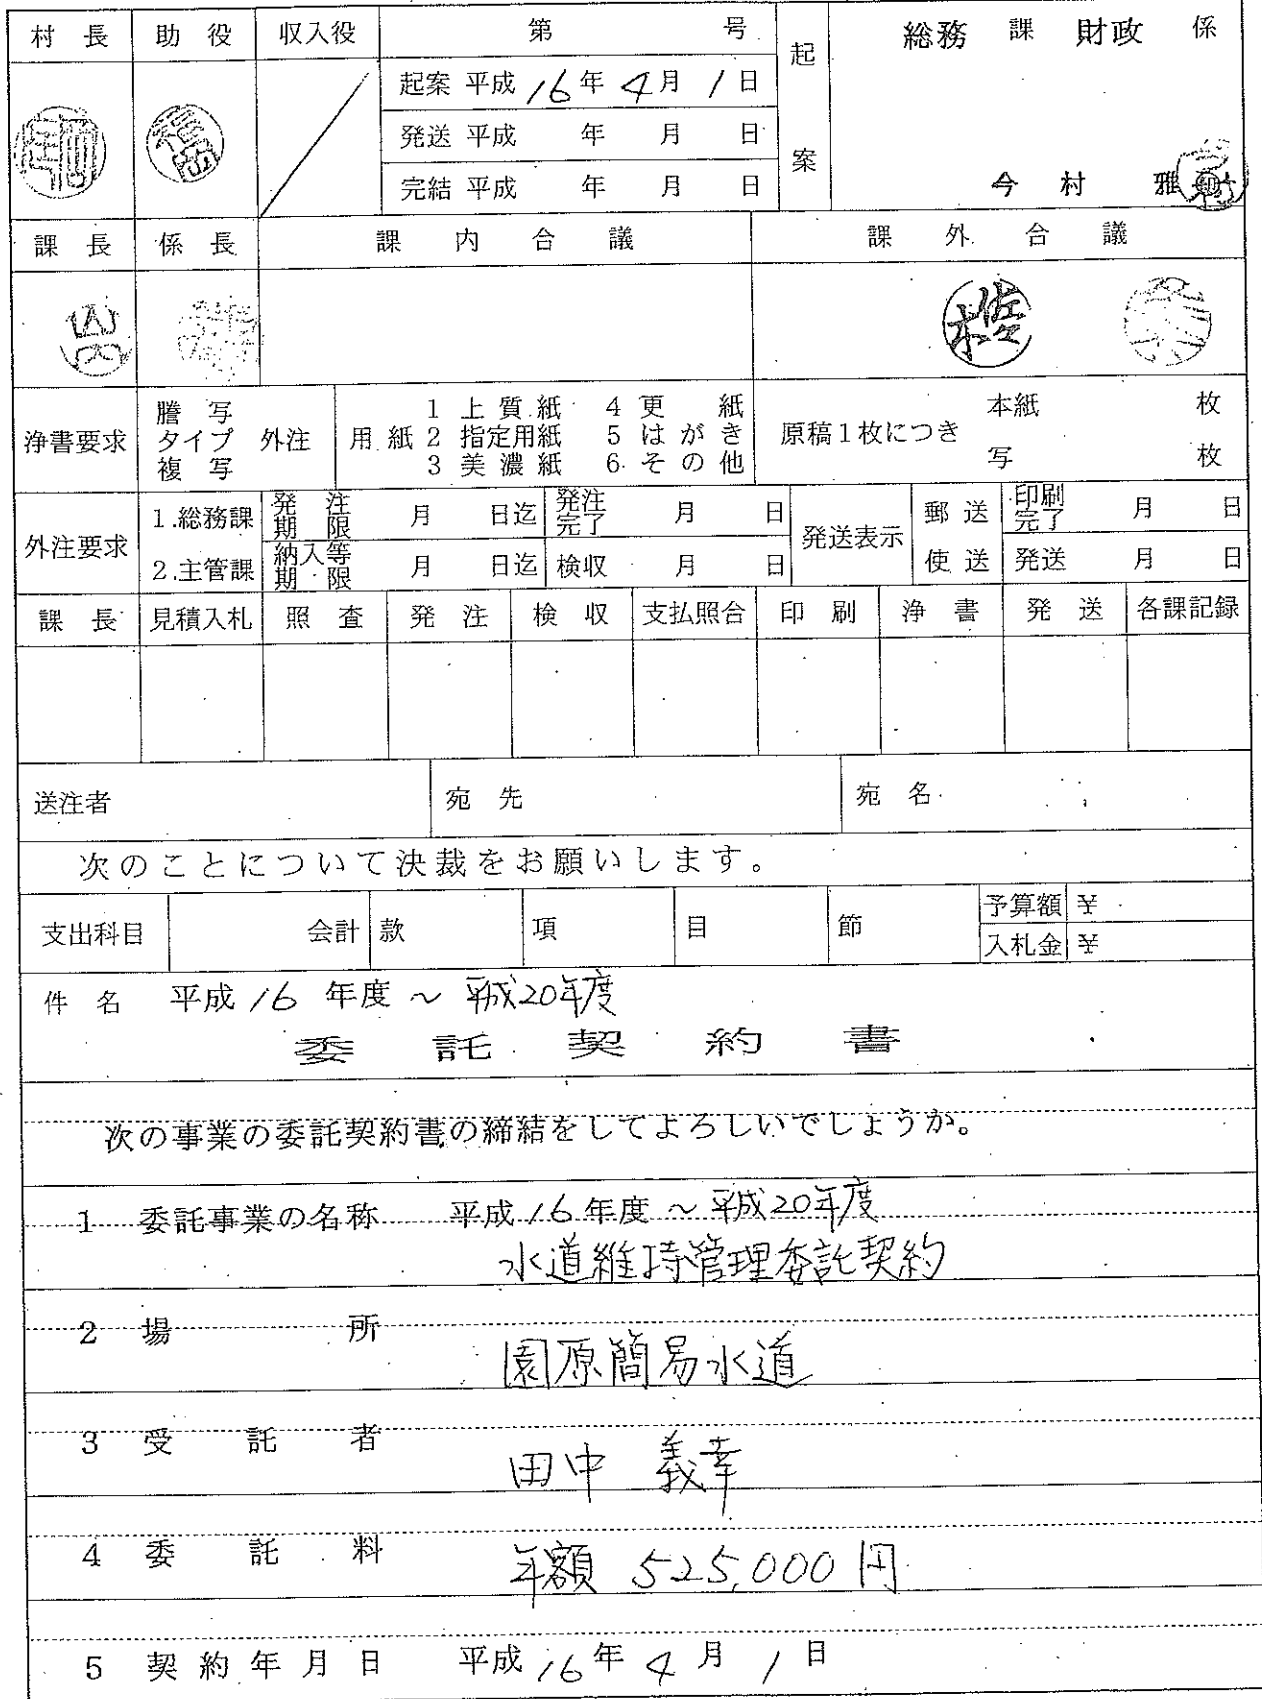 村長 助役 収入役 第 号 起案 総務 課 財政 係
起案 平成 16年 4月 1日
発送 平成 年 月 日
完結 平成 年 月 日
今村 雅
課長 係長 課内合議 課外合議
浄書要求 謄写 タイプ 複写 外注 用紙 1 上質紙 2 指定用紙 3 美濃紙 4 更紙 5 はがき 6 その他 原稿1枚につき 本紙 枚 写 枚
外注要求 1.総務課 2.主管課 発注期限 月 日迄 発注完了 月 日 納入等期限 月 日迄 検収 月 日 発送表示 郵送 使送 印刷完了 月 日 発送 月 日
課長 見積入札 照査 発注 検収 支払照合 印刷 浄書 発送 各課記録
送注者 宛先 宛名
次のことについて決裁をお願いします。
支出科目 会計 款 項 目 節 予算額 ¥ 入札金 ¥
件名 平成 16 年度 ~ 平成20年度
委託契約書
次の事業の委託契約書の締結をしてよろしいでしょうか。
1 委託事業の名称 平成 16 年度 ~ 平成20年度
水道維持管理委託契約
2 場所
園原簡易水道
3 受託者
田中 義幸
4 委託料
年額 525,000円
5 契約年月日 平成 16年 4月 1日